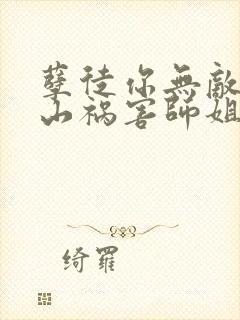 孽徒你無敵
山祸害師姐
绮羅